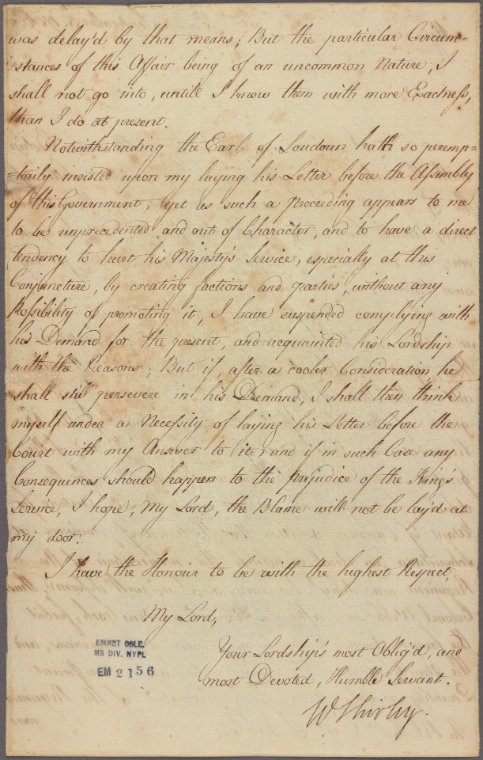 was delay'd by that means; But the particular Circum=
=stances of this Affair being of an uncommon Nature, I
shall not go into, untill I know them with more Exactness,
than I do at present.
Notwithstanding the Earl of Loudoun hath so peremp=
=torily insisted upon my laying his Letter before the Assembly
of this Government; yet as such a proceeding appears to me
to be unprecedented and out of Character, and to have a direct
tendency to hurt his Majesty's Service, especially at this
Conjuncture, by creating factions and parties, without any
Possibility of promoting it, I have suspended complying with
his Demand for the present, and acquainted his Lordship
with the Reasons; But if, after a cooler Consideration he
shall still persevere in his Demand, I shall then think
myself under a Necessity of laying his Letter before the
Court with my Answer to it; and if in such Case any
Consequences should happen to the prejudice of the King's
Service, I hope, My Lord, the Blame will not be lay'd at
my door.
I have the Honour to be with the highest Respect,
My Lord,
Your Lordship's most Oblig'd, and
most Devoted, Humble Servant.
W Shirley.
EMMET COLL.
MS DIV. NYPL
EM 2156